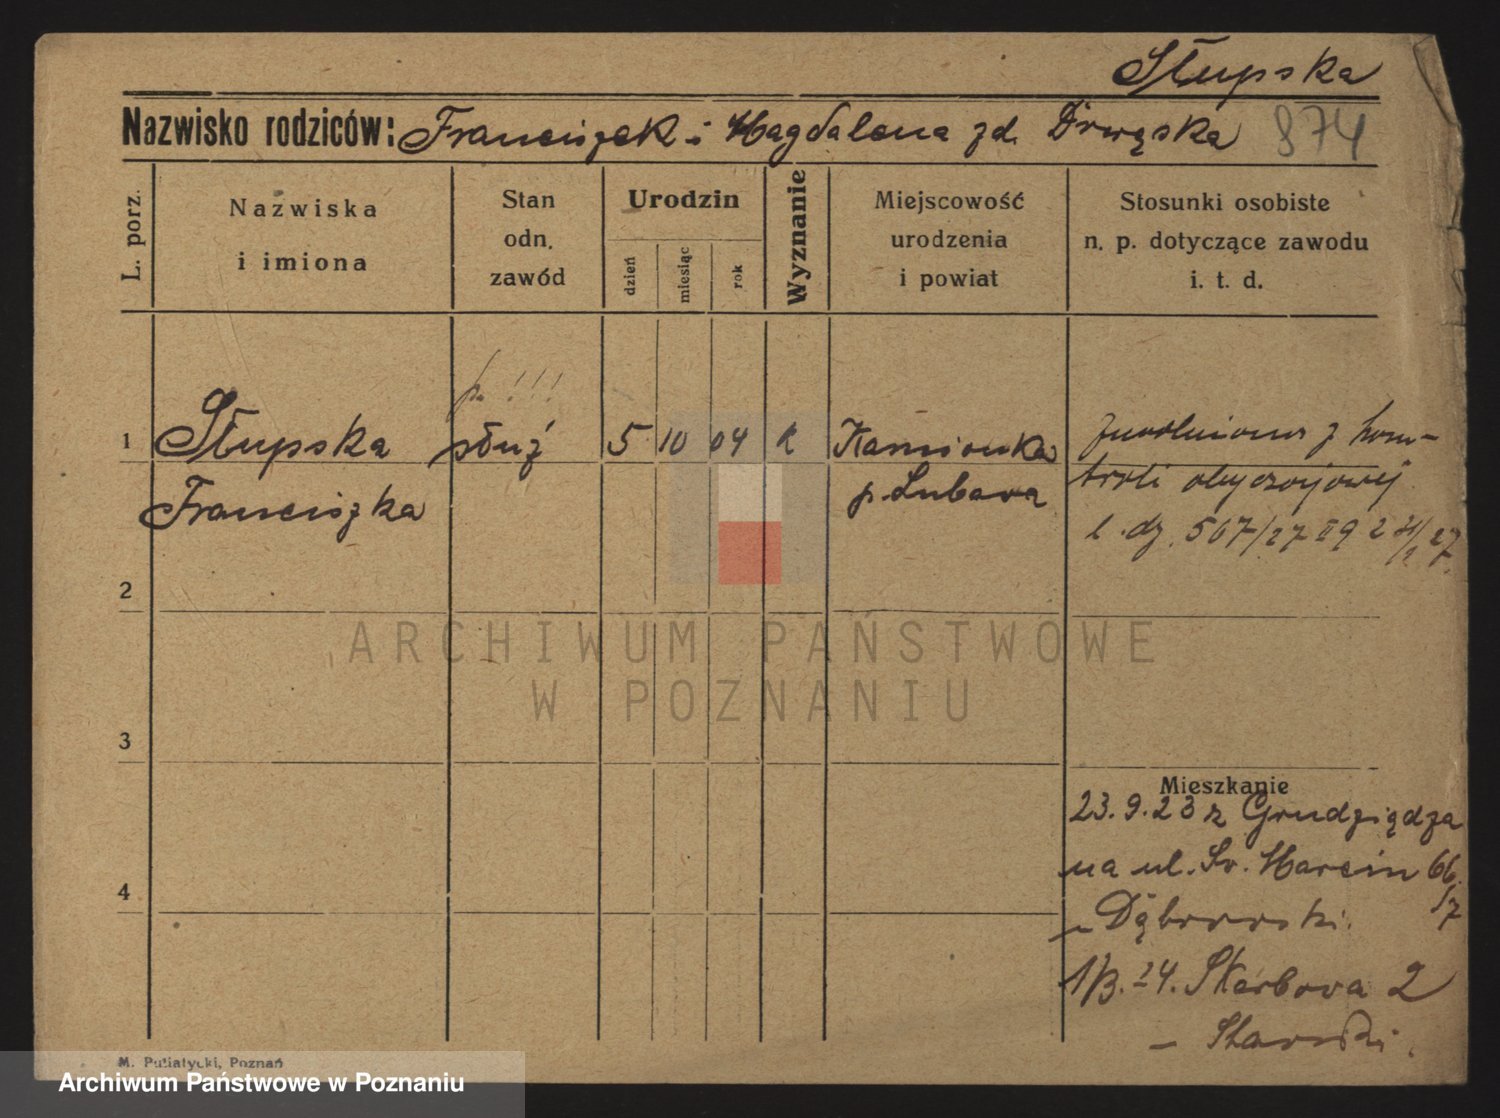 Słupska
Nazwisko rodziców: Franciszek i Magdalena zd. Drwęska 874
L. porz.
Nazwiska
i imiona
Stan
odn.
zawód
Urodzin
dzień
miesiąc
rok
Wyznanie
Miejscowość
urodzenia
i powiat
Stosunki osobiste
n. p. dotyczące zawodu
i. t. d.
!!!
1 Słupska służ 5 10 04 k Kamionka
Franciszka p. Lubawa
zwolniona z kon-
troli obyczajowej
l. dz. 507/27 II 9 2
2
3
4
Mieszkanie
23.9.23 z Grudziądza
na ul. Św. Marcin 66/17
Dąbrowski.
1/3.24. Skarbowa 2
ARCHIWUM PAŃSTWOWE
W POZNANIU
M. Putiatycki, Poznań
Archiwum Państwowe w Poznaniu